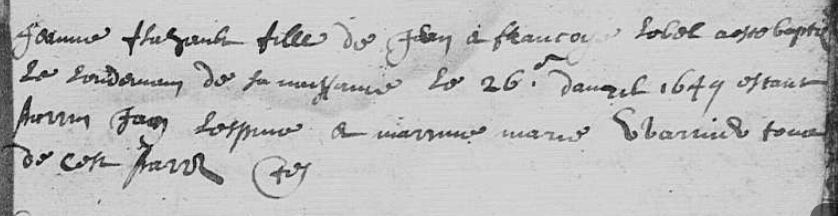 Jeanne flahault fille de Jean & francoyse lobel a este baptisé
le lendemain de sa naissance le 26.e dauvril 1649 estant
parrin Jan lespine & marrine marie warnier tous
de cest parr